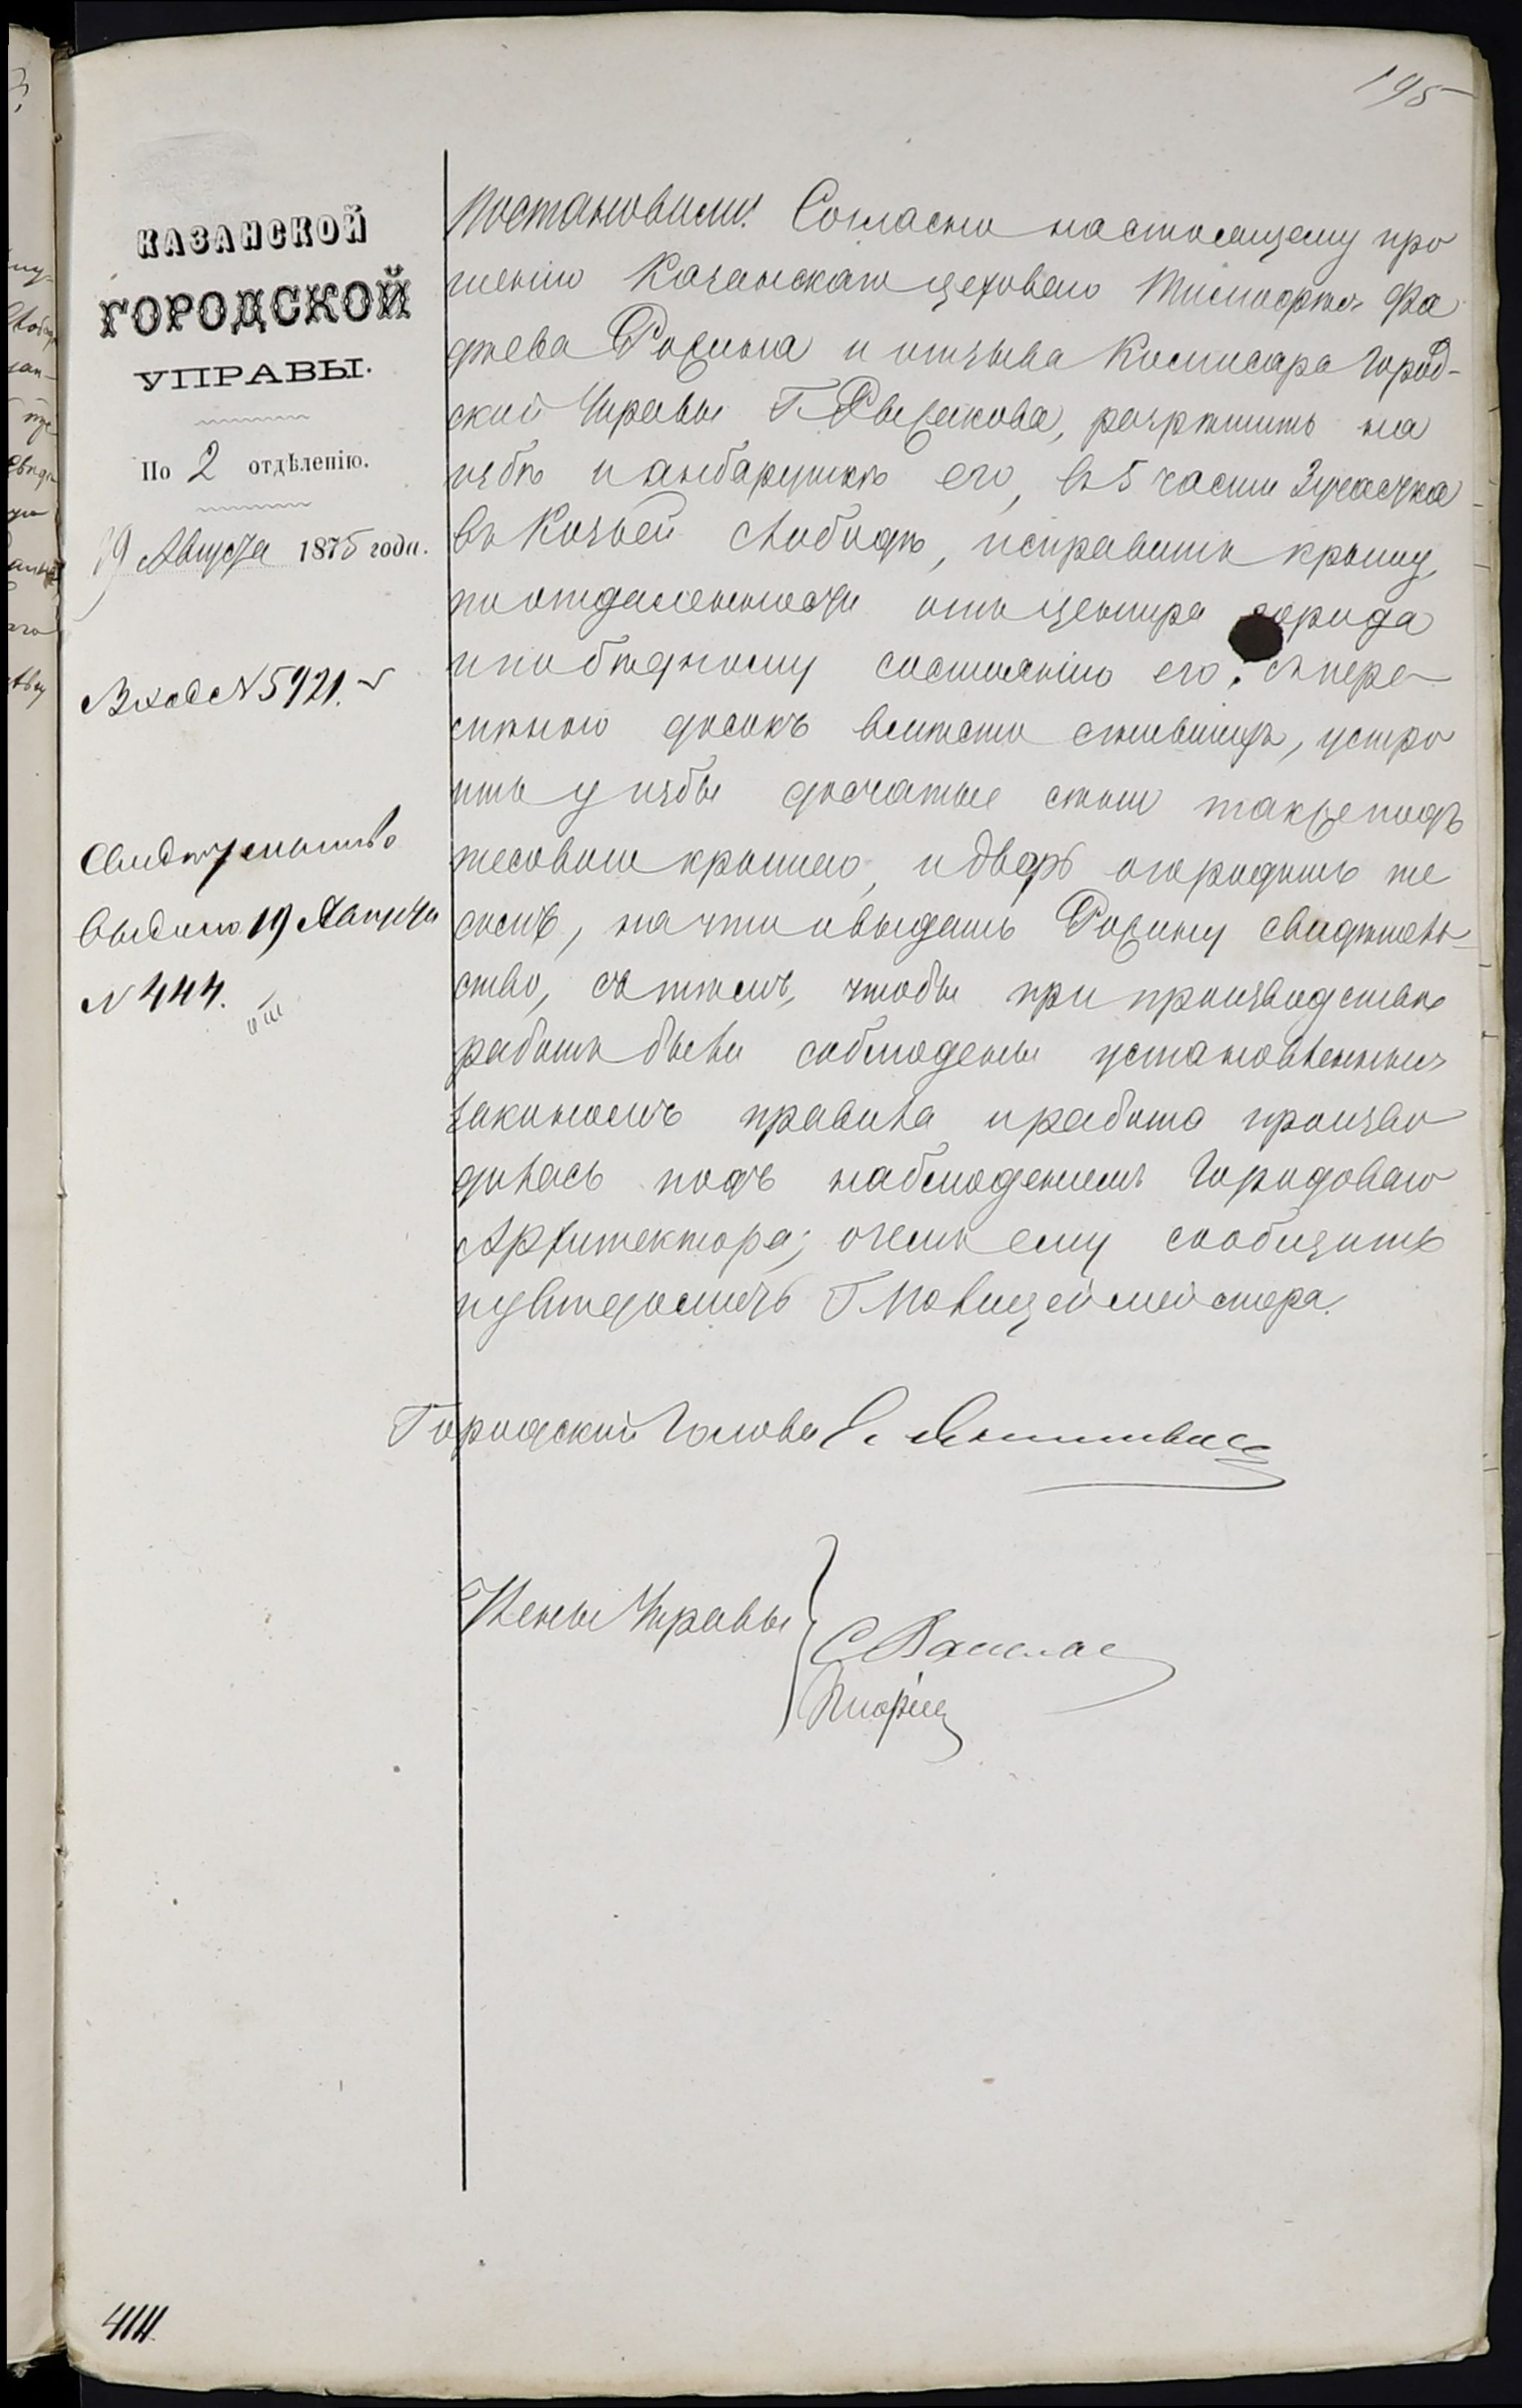 195
КАЗАНСКОЙ
ГОРОДСКОЙ
УПРАВЫ.
По 2 отдѣленію.
19 Августа 1875 года.
Вход № 5921.
Свидѣтельство
выдано 19 Августа
№ 444.
Постановили: Согласно настоящему про
шенію Казанскаго цеховаго Тимофѣя Фа
дѣева Рожина и отзыва Комисара Город-
ской Управы Г. Рыжакова, разрѣшить на
избѣ и анбарушкѣ его, въ 5 части 3 участка
въ Козьей слободѣ, исправить крышу,
по отдаленности отъ центра города
и по бѣдному состоянію его, съ пере
сыпкою досокъ вмѣсто сгнившихъ, устро
ить у избы досчатые сѣни также подъ
тесовою крышею, и дворъ огородить те
сомъ, на что и выдать Рожину свидѣтель-
ство, съ тѣмъ, чтобы при производствѣ
работъ были соблюдены установленныя
закономъ правила и работа произво
дилась подъ наблюденіемъ Городоваго
Архитектора; о чемъ ему сообщить
увѣдомить Г Полицеймейстера.
Городской Голова
Члены Управы
444